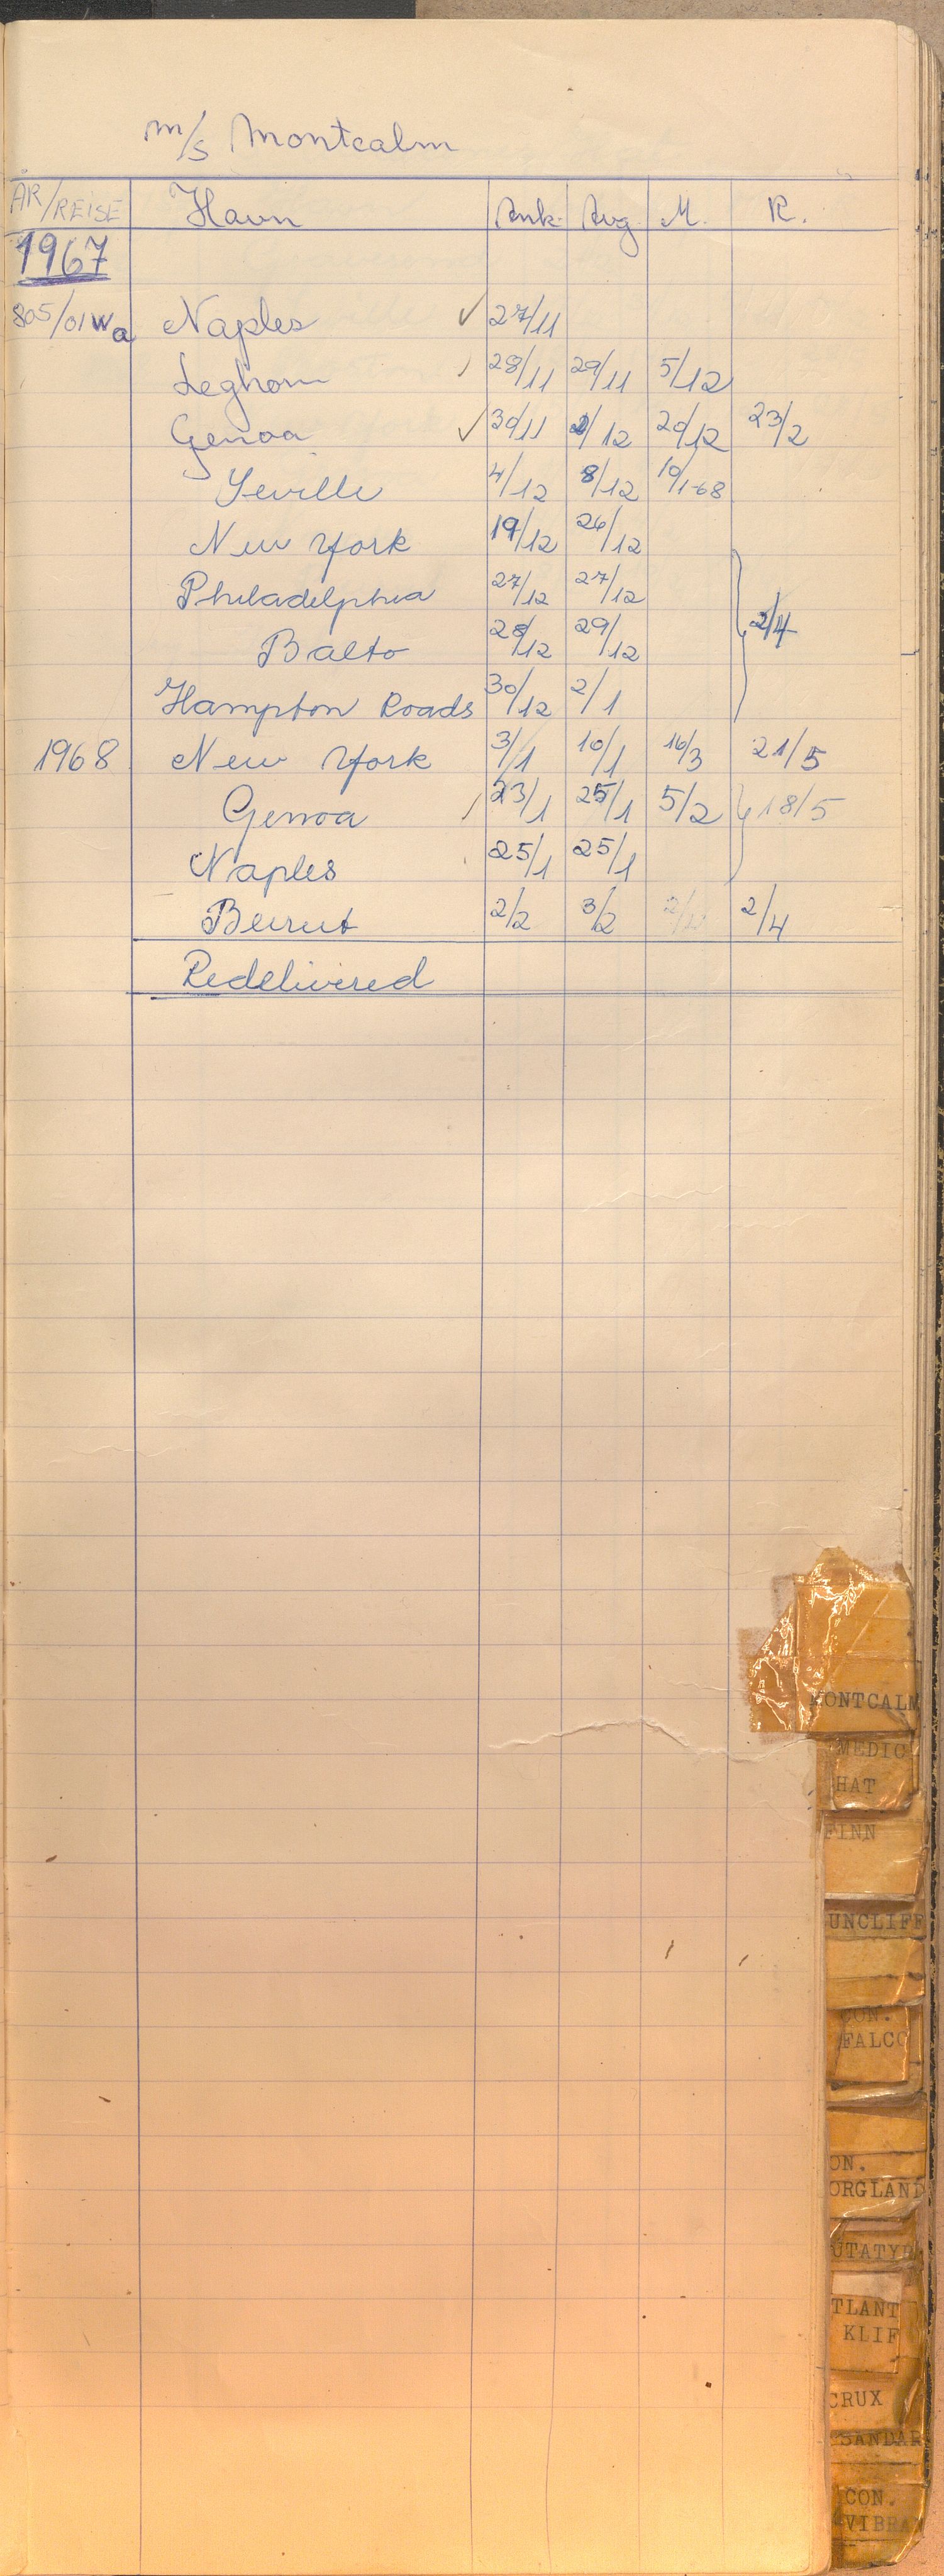 m/s Montcalm
ÅR/REISE Havn Ank. Avg. M. R.
1967
805/01 Wa Naples ✓ 27/11
Leghorn 28/11 29/11 5/12
Genoa ✓ 30/11 2/12 20/12 23/2
Seville 4/12 8/12 10/1-68
New York 19/12 26/12
Philadelphia 27/12 27/12
2/4
Balto 28/12 29/12
Hampton Roads 30/12 2/1
1968 New York 3/1 10/1 16/3 21/5
Genoa 23/1 25/1 5/2 18/5
Naples 25/1 25/1
Beirut 2/2 3/2 2/4
Redelivered
MONTCALM
MEDIC
HAT
FINN
UNCLIFF
CON.
FALCO
ON.
ORGLAND
UTATYR
TLANT
KLIF
CRUX
SANDAR
CON.
VIBRAN